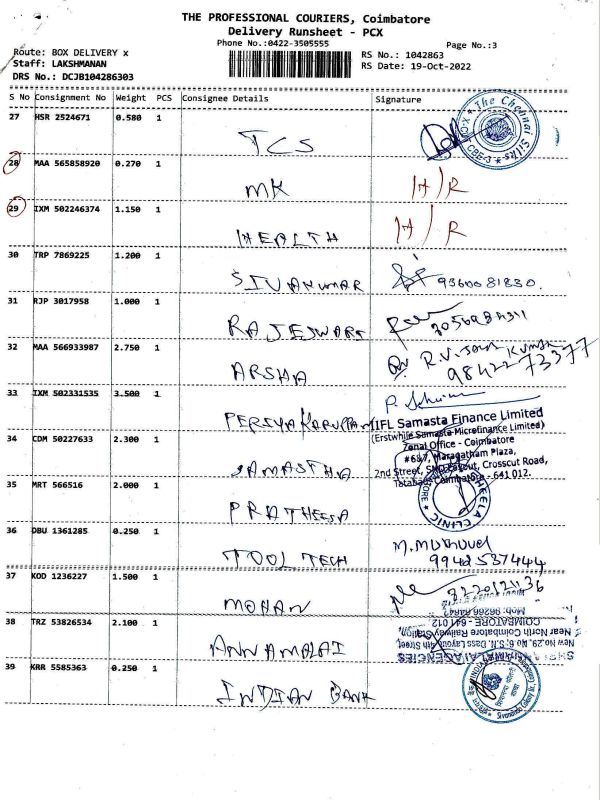 THE PROFESSIONAL COURIERS, Coimbatore
Delivery Runsheet - PCX
Phone No.:0422-3505555
Page No.:3
Route: BOX DELIVERY x
Staff: LAKSHMANAN
DRS No.: DCJB104286303
RS No.: 1042863
RS Date: 19-Oct-2022
S No Consignment No Weight PCS Consignee Details Signature
27 HSR 2524671 0.580 1 TCS
The Chennai Silks
CBE-3
28 MAA 565858920 0.270 1 MK H/R
29 IXM 502246374 1.150 1 HEALTH H/R
30 TRP 7869225 1.200 1 SIVAKUMAR 9360081830.
31 RJP 3017958 1.000 1 RAJESWARI
32 MAA 566933987 2.750 1 ARSHA R.V. KUMAR
9842273377
33 IXM 502331535 3.500 1 PERIYAKARUPPAN P.
IIFL Samasta Finance Limited
(Erstwhile Samasta Microfinance Limited)
Zonal Office - Coimbatore
#687, Maragatham Plaza,
2nd Street, Layout, Crosscut Road,
Tatabad, Coimbatore - 641 012.
34 CDM 50227633 2.300 1 SAMASTHA
35 MRT 566516 2.000 1 PRATHEESA
SHEELA CLINIC
36 DBU 1361285 0.250 1 TOOL TECH 9942537444
37 KOD 1236227 1.500 1 MOHAN
38 TRZ 53826534 2.100 1 ANNAMALAI
SHRI ANNAMALAI AGENCIES
New No.29, No.6, S.N. Dass Layout, 4th Street,
Near North Coimbatore Railway Station,
COIMBATORE - 641 012
39 KRR 5585363 0.250 1 INDIAN BANK